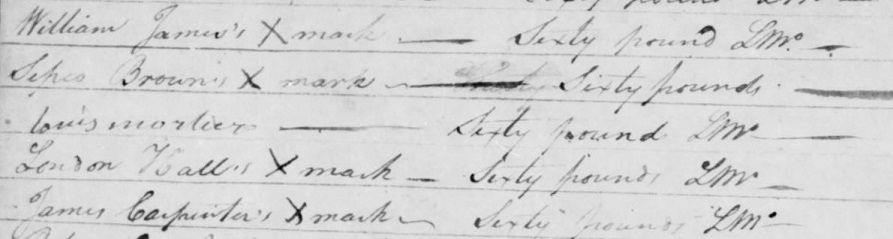 Sixty pound LMo.
William James's X mark — Sixty pound LMo. —
Sepeo Brown's X mark — Sixty pounds —
louis mortier — Sixty pound LMo —
London Hall's X mark — Sixty pounds LMo —
James Carpinter's X mark — Sixty pounds LMo